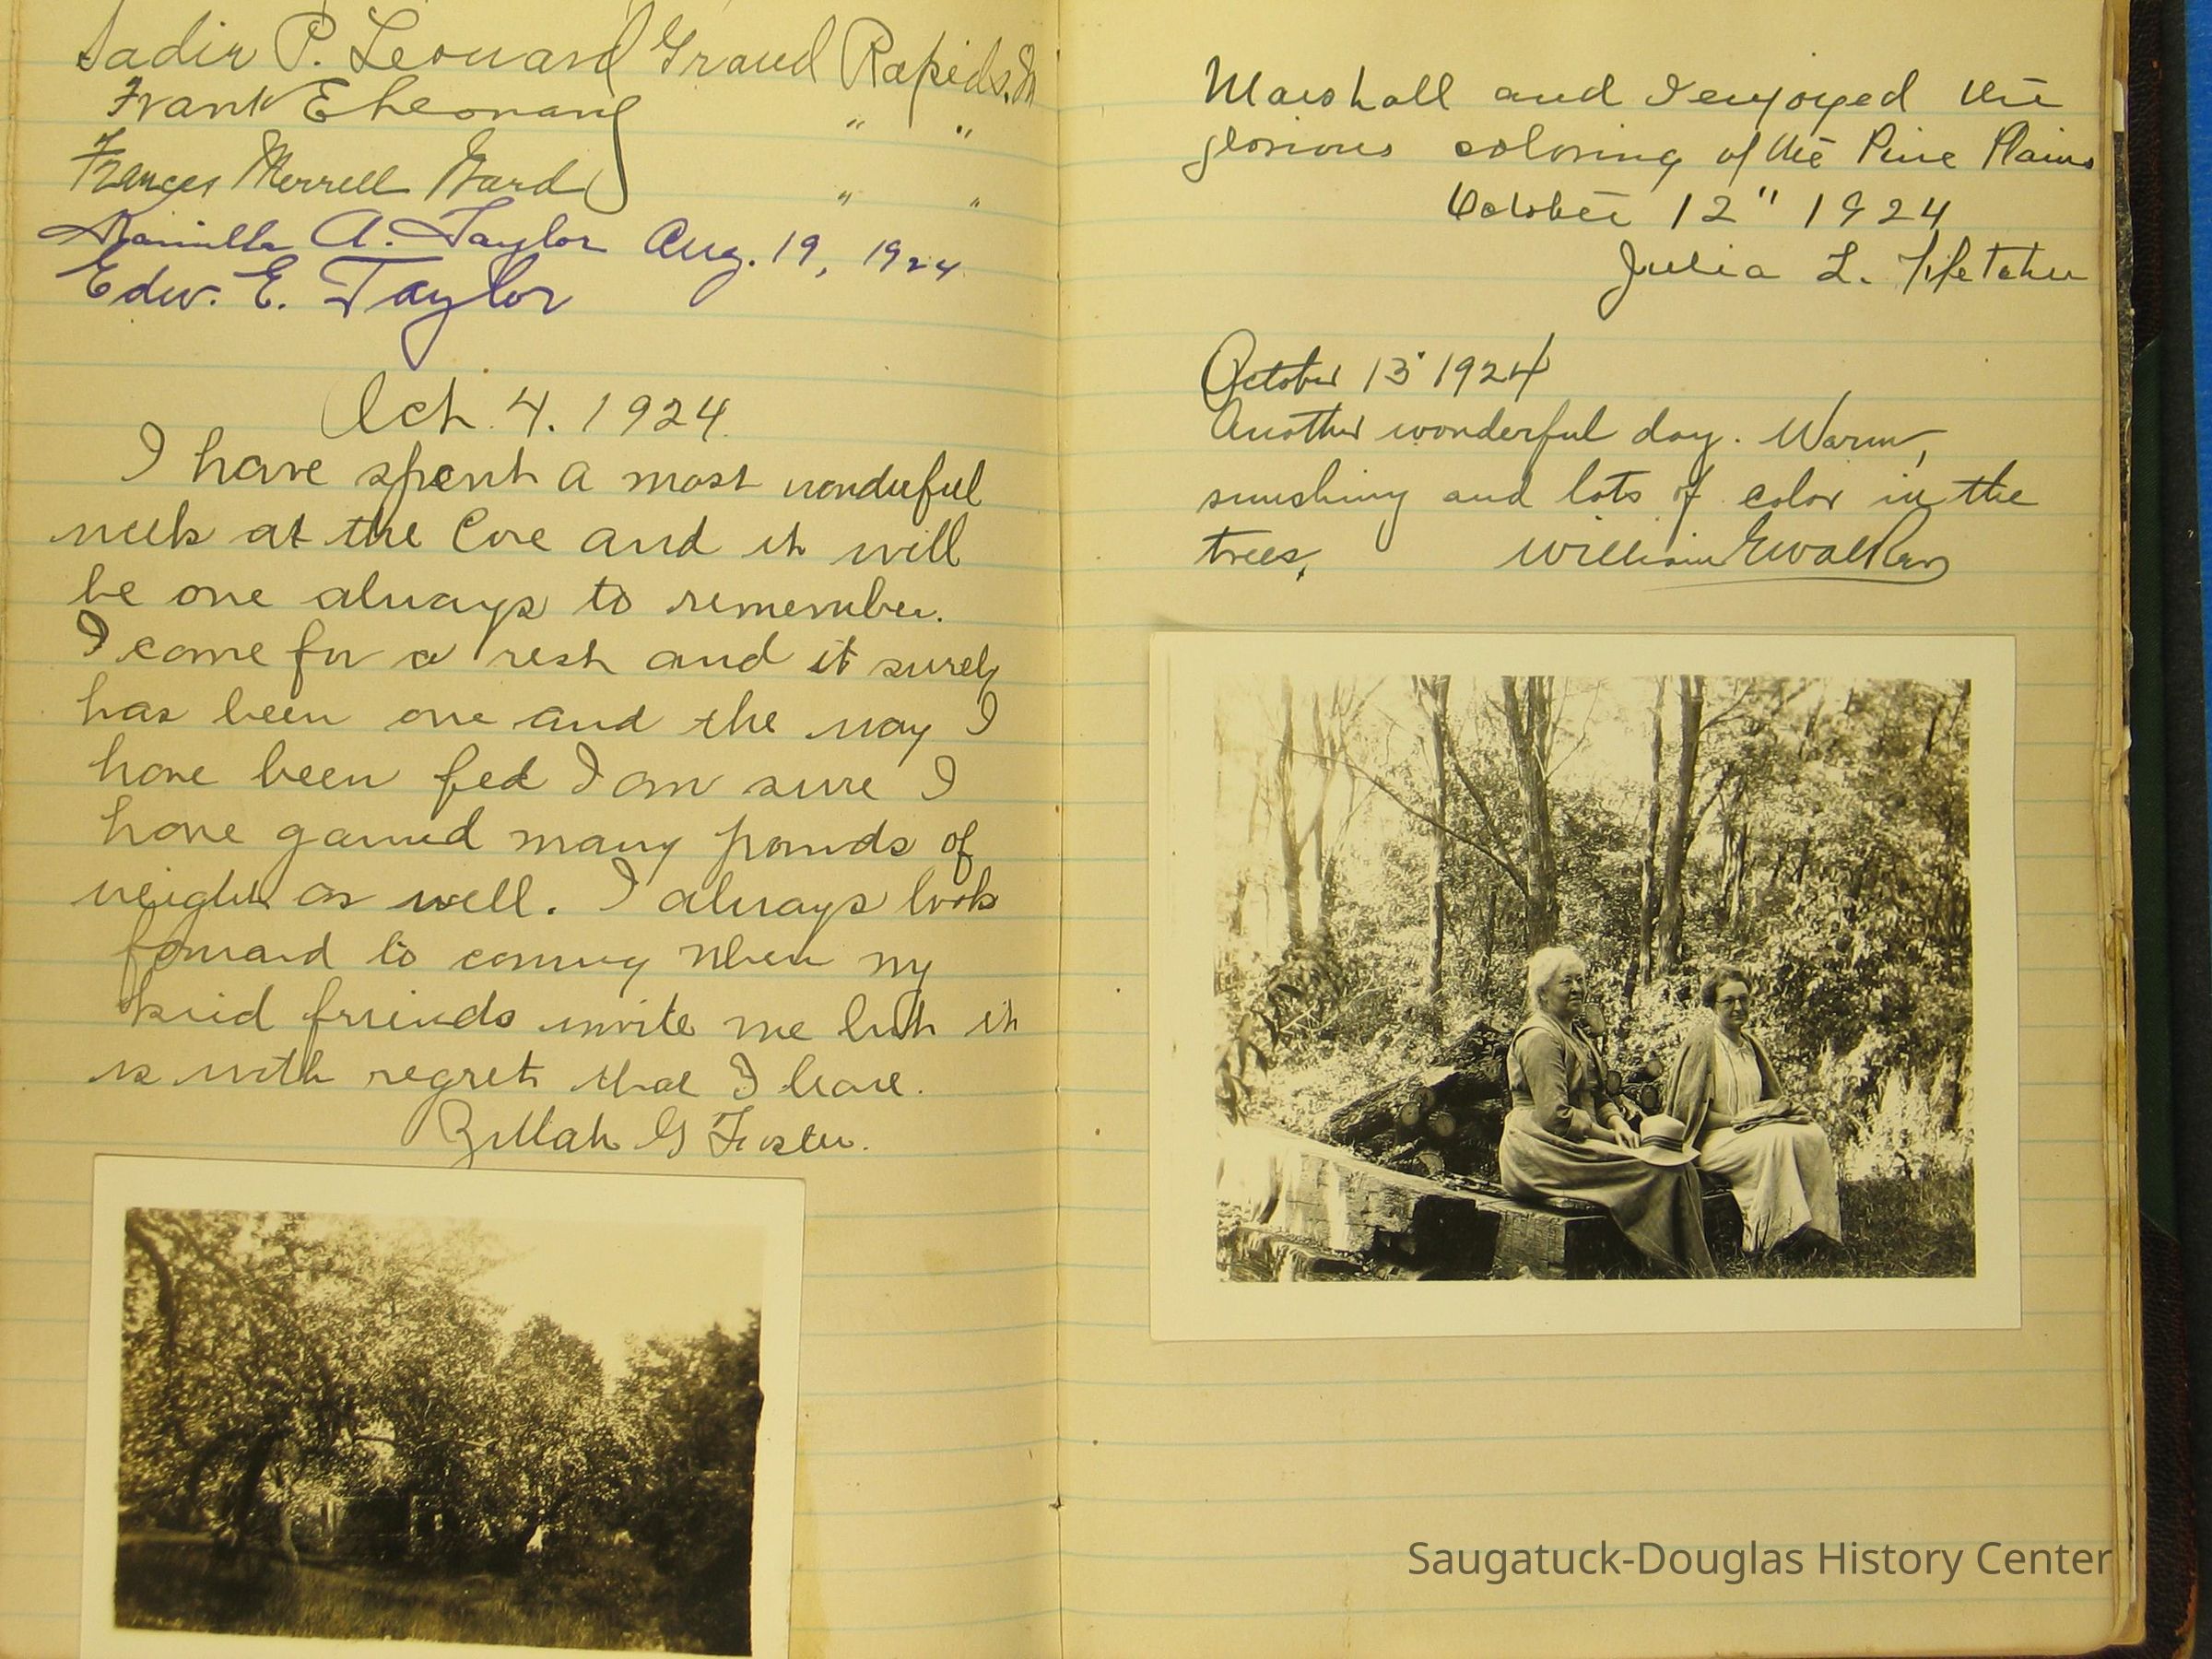 Sadie P. Leonard Grand Rapids, M
Frank E Leonard " "
Frances Merrell Ward " "
A. Taylor Aug. 19, 1924
Edw. E. Taylor
Oct. 4. 1924.
I have spent a most wonderful
week at the Cove and it will
be one always to remember.
I come for a rest and it surely
has been one and the way I
have been fed I am sure I
have gained many pounds of
weight as well. I always look
forward to coming when my
kind friends invite me but it
is with regret that I leave.
Zillah G Foster.
Marshall and I enjoyed the
glorious coloring of the Pine Plains
October 12" 1924
Julia L.
October 13 1924
Another wonderful day. Warm,
sunshiny and lots of color in the
trees. William E Walker
Saugatuck-Douglas History Center